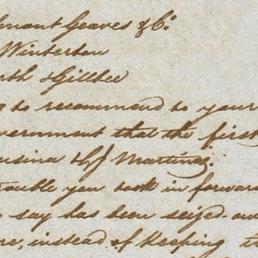 Graves & Co
Winterton
& Gillbee
to recommend to your
vernment that the first
Martinez
ouble you took in forward
say has been seized and
re, instead of keeping it